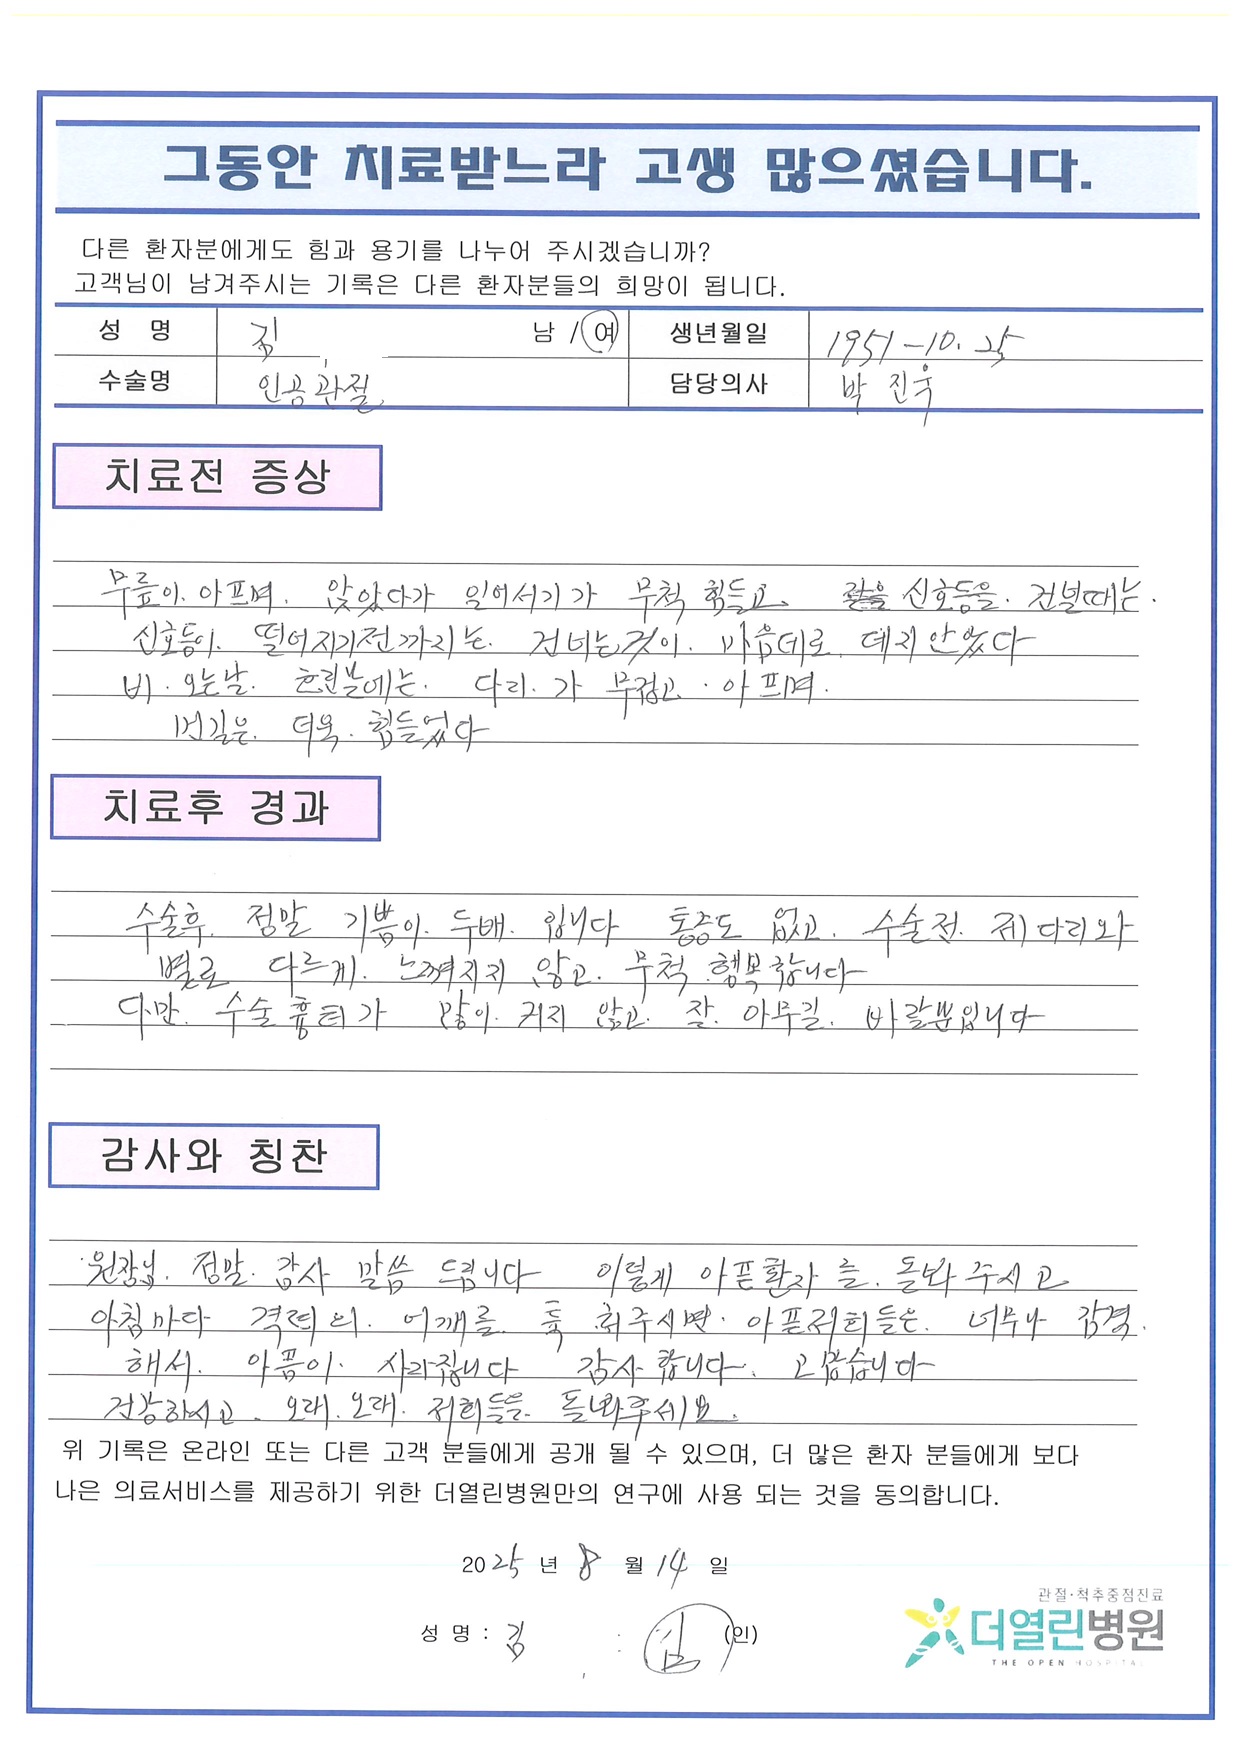 그동안 치료받느라 고생 많으셨습니다.
다른 환자분에게도 힘과 용기를 나누어 주시겠습니까?
고객님이 남겨주시는 기록은 다른 환자분들의 희망이 됩니다.
성 명 김 남 / 여 생년월일 1951-10.25
수술명 인공관절 담당의사 박진욱
치료전 증상
무릎이. 아프며. 앉았다가 일어서기가 무척 힘들고 신호등을. 건널때는.
신호등이. 떨어지기전까지는. 건너는것이. 마음데로. 데지안았다
비. 오는날. 흐린날에는. 다리. 가 무겁고. 아프며.
먼길은. 더욱. 힘들었다
치료후 경과
수술후. 정말 기쁨이. 두배. 입니다 통증도 없고. 수술전. 제다리와
별로 다르게. 느껴지지 않고. 무척 행복합니다
다만. 수술흉터가 많이. 커지 않고. 잘. 아무길. 바랄뿐입니다
감사와 칭찬
원장님. 정말. 감사 말씀 드립니다 이렇게 아픈환자를. 돌봐주시고
아침마다 격려의. 어깨를. 툭 쳐주시면. 아픈저희들은. 너무나 감격.
해서. 아픔이. 사라집니다 감사합니다. 고맙습니다
건강하시고. 오래. 오래. 저희들을. 돌봐주세요.
위 기록은 온라인 또는 다른 고객 분들에게 공개 될 수 있으며, 더 많은 환자 분들에게 보다
나은 의료서비스를 제공하기 위한 더열린병원만의 연구에 사용 되는 것을 동의합니다.
2025 년 8 월 14 일
관절·척추중점진료
성 명 : 김 김 (인)
더열린병원
THE OPEN HOSPITAL